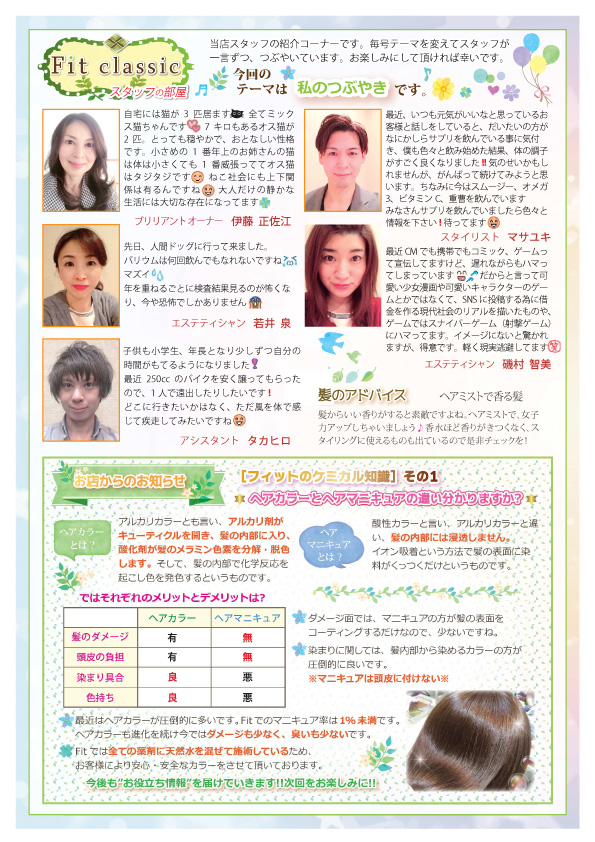 Fit classic
スタッフの部屋
当店スタッフの紹介コーナーです。毎号テーマを変えてスタッフが
一言ずつ、つぶやいています。お楽しみにして頂ければ幸いです。
今回の
テーマは 私のつぶやき です。
自宅には猫が 3 匹居ます 全てミック
ス猫ちゃんです 7 キロもあるオス猫が
2 匹。とっても穏やかで、おとなしい性格
です。小さめの 1 番年上のお姉さんの猫
は体は小さくても 1 番威張っててオス猫
はタジタジです ねこ社会にも上下関
係は有るんですね 大人だけの静かな
生活には大切な存在になってます
ブリリアントオーナー 伊藤 正佐江
先日、人間ドッグに行って来ました。
バリウムは何回飲んでもなれないですね
マズイ
年を重ねるごとに検査結果見るのが怖くな
り、今や恐怖でしかありません
エステティシャン 若井 泉
子供も小学生、年長となり少しずつ自分の
時間がもてるようになりました
最近 250cc のバイクを安く譲ってもらった
ので、1 人で遠出したりしたいです!
どこに行きたいかはなく、ただ風を体で感
じて疾走してみたいですね
アシスタント タカヒロ
最近、いつも元気がいいなと思っているお
客様と話しをしていると、だいたいの方が
なにかしらサプリを飲んでいる事に気付
き、僕も色々と飲み始めた結果、体の調子
がすごく良くなりました!!気のせいかもし
れませんが、がんばって続けてみようと思
います。ちなみに今はスムージー、オメガ
3、ビタミン C、重曹を飲んでいます
みなさんサプリを飲んでいましたら色々と
情報を下さい!待ってます
スタイリスト マサユキ
最近CMでも携帯でもコミック、ゲームっ
て宣伝してますけど、遅れながらもハマっ
てしまっています だからと言って可
愛い少女漫画や可愛いキャラクターのゲー
ムとかではなくて、SNSに投稿する為に借
金を作る現代社会のリアルを描いたものや、
ゲームではスナイパーゲーム（射撃ゲーム）
にハマってます。イメージにないと驚かれ
ますが、得意です。軽く現実逃避してます
エステティシャン 磯村 智美
髪のアドバイス ヘアミストで香る髪
髪からいい香りがすると素敵ですよね。ヘアミストで、女子
力アップしちゃいましょう♪香水ほど香りがきつくなく、ス
タイリングに使えるものも出ているので是非チェックを!
お店からのお知らせ
［フィットのケミカル知識］その1
ヘアカラーとヘアマニキュアの違い分かりますか?
ヘアカラー
とは?
アルカリカラーとも言い、アルカリ剤が
キューティクルを開き、髪の内部に入り、
酸化剤が髪のメラミン色素を分解・脱色
します。そして、髪の内部で化学反応を
起こし色を発色するというものです。
ヘア
マニキュア
とは?
酸性カラーと言い、アルカリカラーと違
い、髪の内部には浸透しません。
イオン吸着という方法で髪の表面に染
料がくっつくだけというものです。
ではそれぞれのメリットとデメリットは?
ヘアカラー ヘアマニキュア
髪のダメージ 有 無
頭皮の負担 有 無
染まり具合 良 悪
色持ち 良 悪
ダメージ面では、マニキュアの方が髪の表面を
コーティングするだけなので、少ないですね。
染まりに関しては、髪内部から染めるカラーの方が
圧倒的に良いです。
※マニキュアは頭皮に付けない※
最近はヘアカラーが圧倒的に多いです。Fitでのマニキュア率は1%未満です。
ヘアカラーも進化を続け今ではダメージも少なく、臭いも少ないです。
Fit では全ての薬剤に天然水を混ぜて施術しているため、
お客様により安心・安全なカラーをさせて頂いております。
今後も“お役立ち情報”を届けていきます!!次回をお楽しみに!!